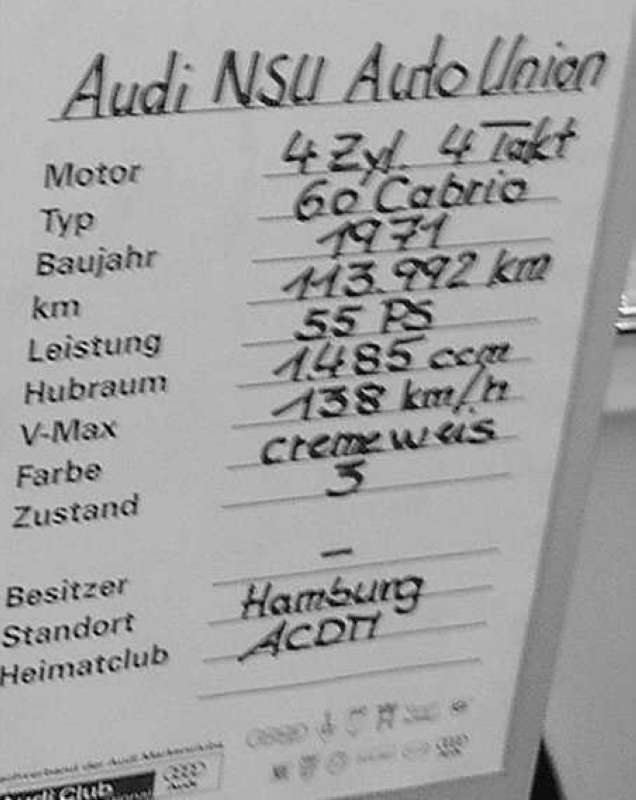 Audi NSU Auto Union
Motor 4 Zyl. 4 Takt
Typ 60 Cabrio
Baujahr 1971
km 113.992 km
Leistung 55 PS
Hubraum 1.485 ccm
V-Max 138 km/h
Farbe cremeweis
Zustand 3
Besitzer –
Standort Hamburg
Heimatclub
der Audi
Audi Club